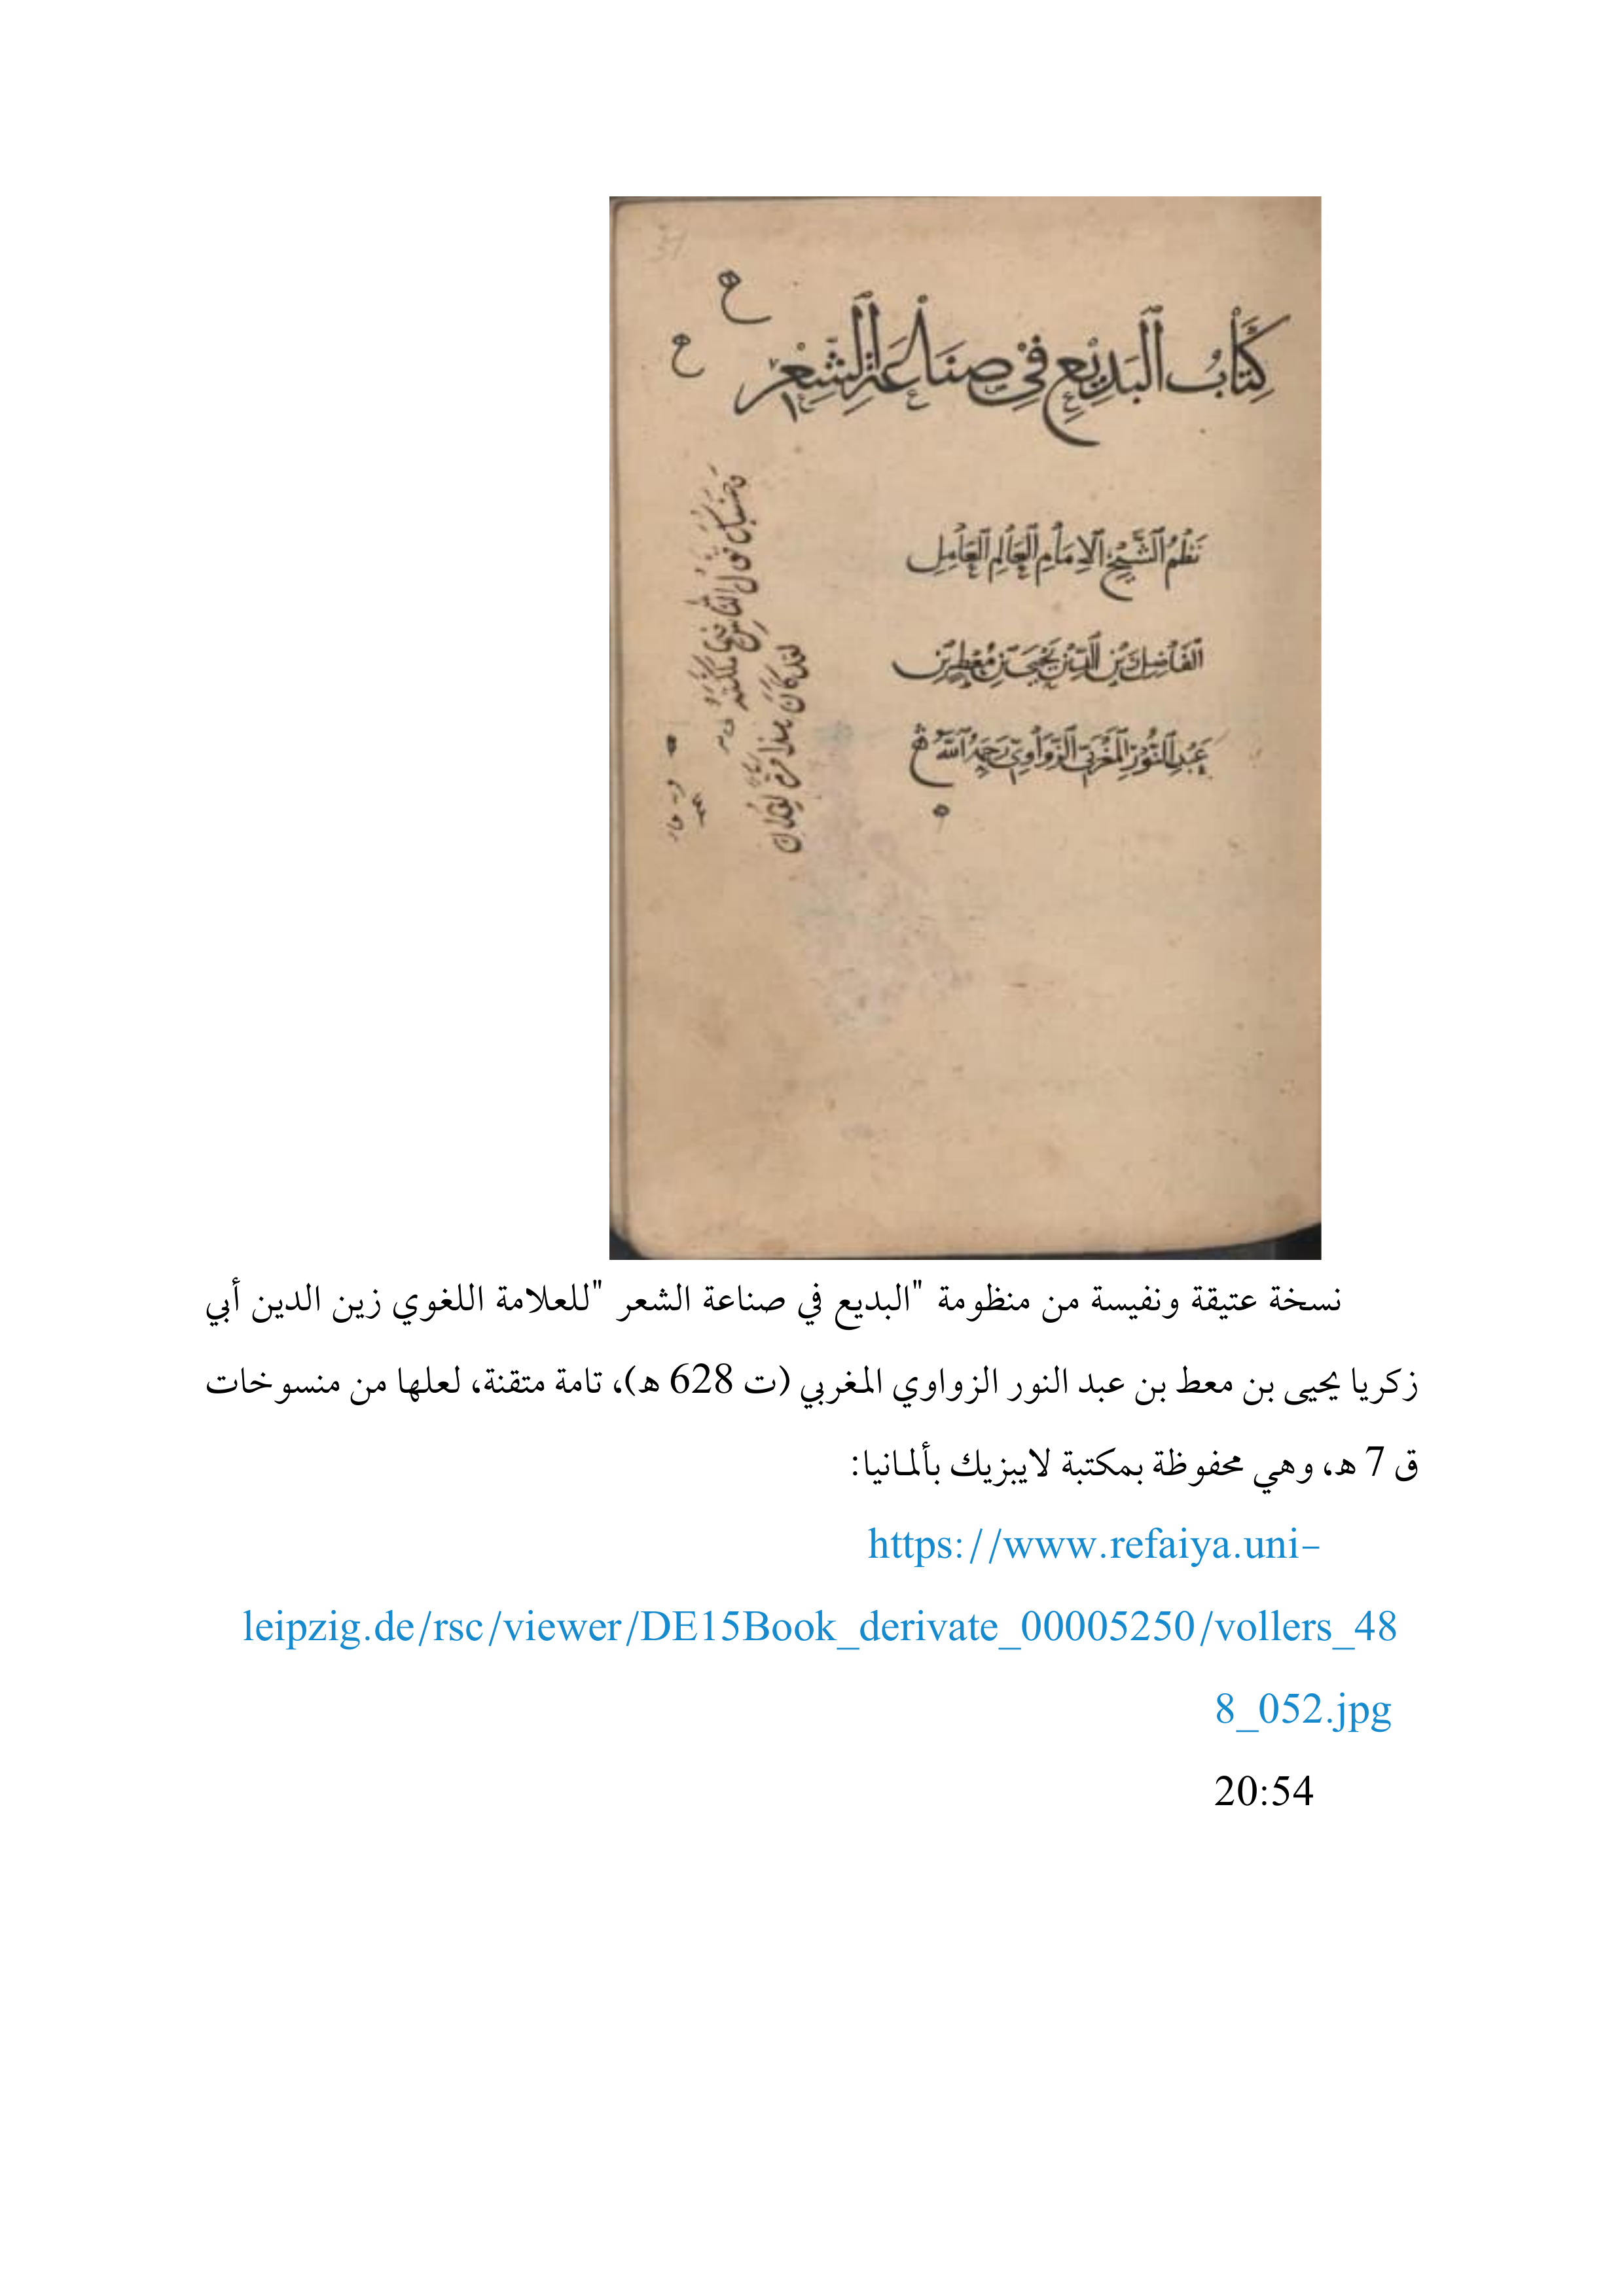 كِتَابُ البَدِيْعِ فِي صِنَاعَةِ الشِّعْرِ
نَظْمُ الشَّيْخِ الاِمَامِ العَالِمِ العَامِلِ
الفَاضِلِ زَيْنِ الدِّيْنِ يَحْيَى بْنِ مُعْطِ بْنِ
عَبْدِ النُّوْرِ المَغْرِبِيّ الزَّوَاوِيّ رَحِمَهُ اللّٰهُ
وحسبك قول الناس فيما ملكته
لقد كان هذا مرة لفلان
نسخة عتيقة ونفيسة من منظومة "البديع في صناعة الشعر "للعلامة اللغوي زين الدين أبي
زكريا يحيى بن معط بن عبد النور الزواوي المغربي (ت 628 هـ)، تامة متقنة، لعلها من منسوخات
ق 7 هـ، وهي محفوظة بمكتبة لايبزيك بألمانيا:
https://www.refaiya.uni-
leipzig.de/rsc/viewer/DE15Book_derivate_00005250/vollers_48
8_052.jpg
20:54